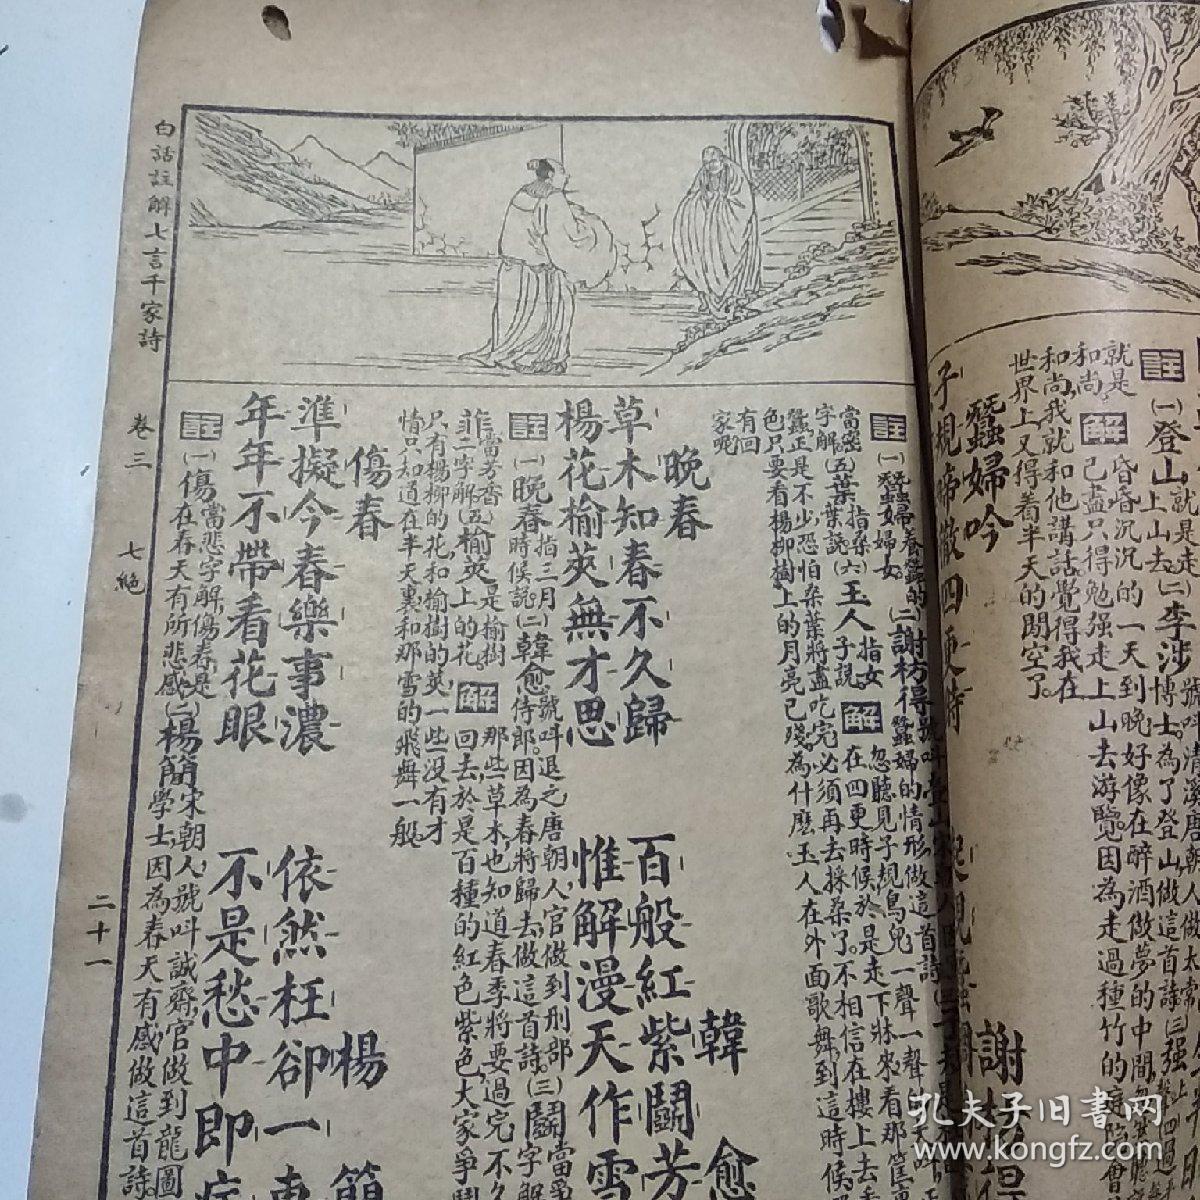 就是走
㊟(一)登山上山去(二)李涉
就是
和尚㊟解
昏昏沉沉的一天到晚好像在醉酒做夢的中間
己盡只得勉强走上山去游覽因為走過種竹的
和尚我就和他講話覺得我在
世界上又得着半天的閒空了
蠶婦吟
謝枋得
子規啼徹四更時
註(一)蠶婦養蠶的婦女(二)謝枋得
當密字解(五)葉指桑葉說(六)玉人指女子說解在四更時候於是走下牀來看那
忽聽見子規鳥兒一聲一聲
蠶正是不少恐怕桑葉將盡吃完必須再去採桑了不相信在樓上去
色只要看楊柳樹上的月亮已殘為什麼玉人在外面歌舞到這時候
有回家呢
晚春
韓愈
草木知春不久歸
百般紅紫鬭芳
楊花榆莢無才思
惟解漫天作雪
註(一)晚春指三月時候說(二)韓愈號叫退之唐朝人官做到刑部侍郎因為春將歸去做這首詩(三)鬭當爭字解
菲當芳香二字解(五)榆莢是榆樹上的花解那些草木也知道春季將要過完不久
回去於是百種的紅色紫色大家爭鬭
只有楊柳的花和榆樹的莢一些沒有才
情只知道在半天裏和那雪的飛舞一般
傷春
楊簡
準擬今春樂事濃
依然枉卻一東
年年不帶看花眼
不是愁中即病
註(一)傷當悲字解傷春是在春天有所悲感(二)楊簡宋朝人號叫誠齋官做到龍圖學士因為春天有感做這首詩
白話註解七言千家詩
卷三
七絕
二十一
孔夫子旧書网
www.kongfz.com